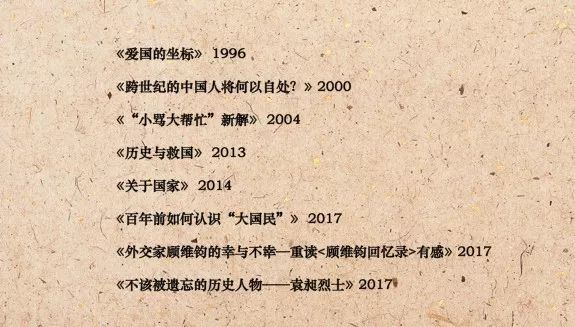 《爱国的坐标》 1996
《跨世纪的中国人将何以自处？》2000
《“小骂大帮忙”新解》 2004
《历史与救国》 2013
《关于国家》 2014
《百年前如何认识“大国民”》 2017
《外交家顾维钧的幸与不幸—重读<顾维钧回忆录>有感》2017
《不该被遗忘的历史人物——袁昶烈士》2017